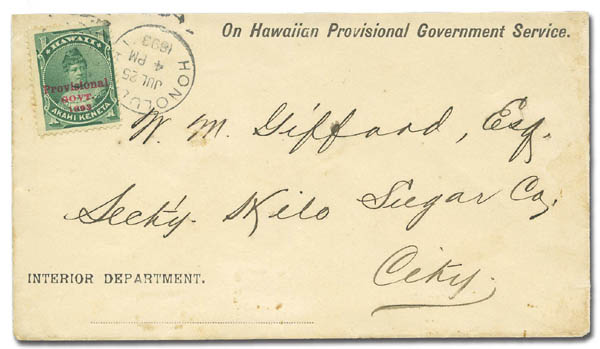 On Hawaiian Provisional Government Service.
HAWAII
Provisional
GOVT.
1893
AKAHI KENETA
HONOLU
JUL 25
4 PM
1893
W. M. Giffard, Esq.
Sect'y. Hilo Sugar Co,
City.
INTERIOR DEPARTMENT.